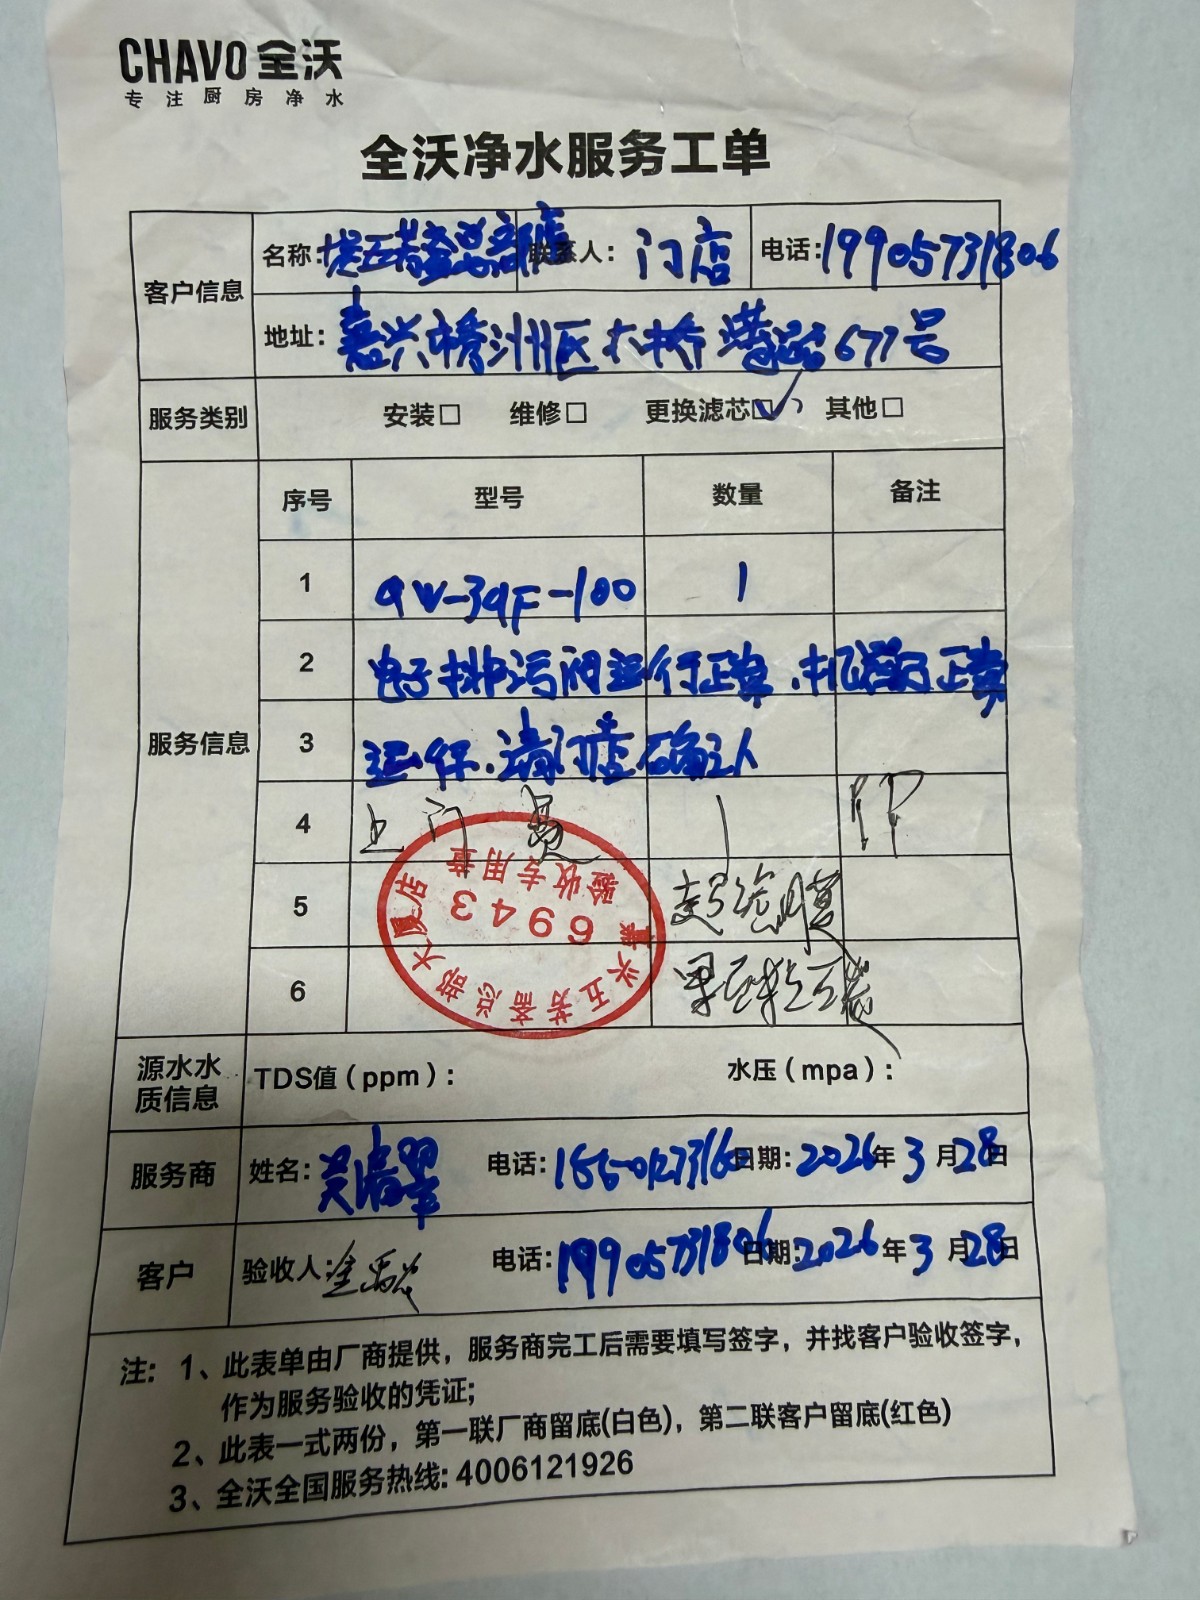 CHAVO 全沃
专注厨房净水
全沃净水服务工单
客户信息
名称: 五芳斋总部店 联系人: 门店 电话: 19905731806
地址: 嘉兴 洲区大桥 路677号
服务类别 安装□ 维修□ 更换滤芯☑ 其他□
服务信息
序号 型号 数量 备注
1 QW-39F-100 1
2 电子排污阀运行正常、机器运行正常
3 运行、请门店确认
4 上门费 1 PP
5
6
嘉兴五芳斋总部大厦店
6943
验收专用章
源水水质信息 TDS值（ppm）: 水压（mpa）:
服务商 姓名: 吴 翠 电话: 日期: 2026年3月28日
客户 验收人: 电话: 19905731806 日期: 2026年3月28日
注: 1、此表单由厂商提供，服务商完工后需要填写签字，并找客户验收签字，
作为服务验收的凭证;
2、此表一式两份，第一联厂商留底(白色)，第二联客户留底(红色)
3、全沃全国服务热线: 4006121926